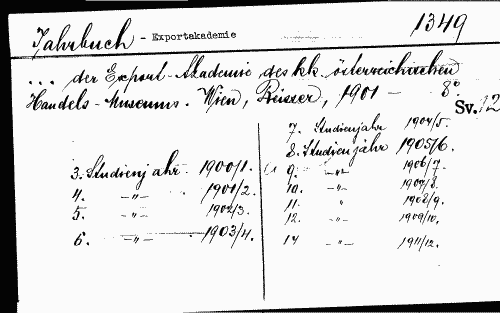 1349
Jahrbuch - Exportakademie
... der Export-Akademie des kk. österreichischen
Handels-Museums. Wien, Reisser, 1901 - 8°
Sv. 12
3. Studienjahr 1900/1.
4. -"- 1901/2.
5. -"- 1902/3.
6. -"- 1903/4.
7. Studienjahr 1904/5.
8. Studienjahr 1905/6.
9. -"- 1906/7.
10. -"- 1907/8.
11. " 1908/9.
12. -"- 1909/10.
14 -"- 1911/12.